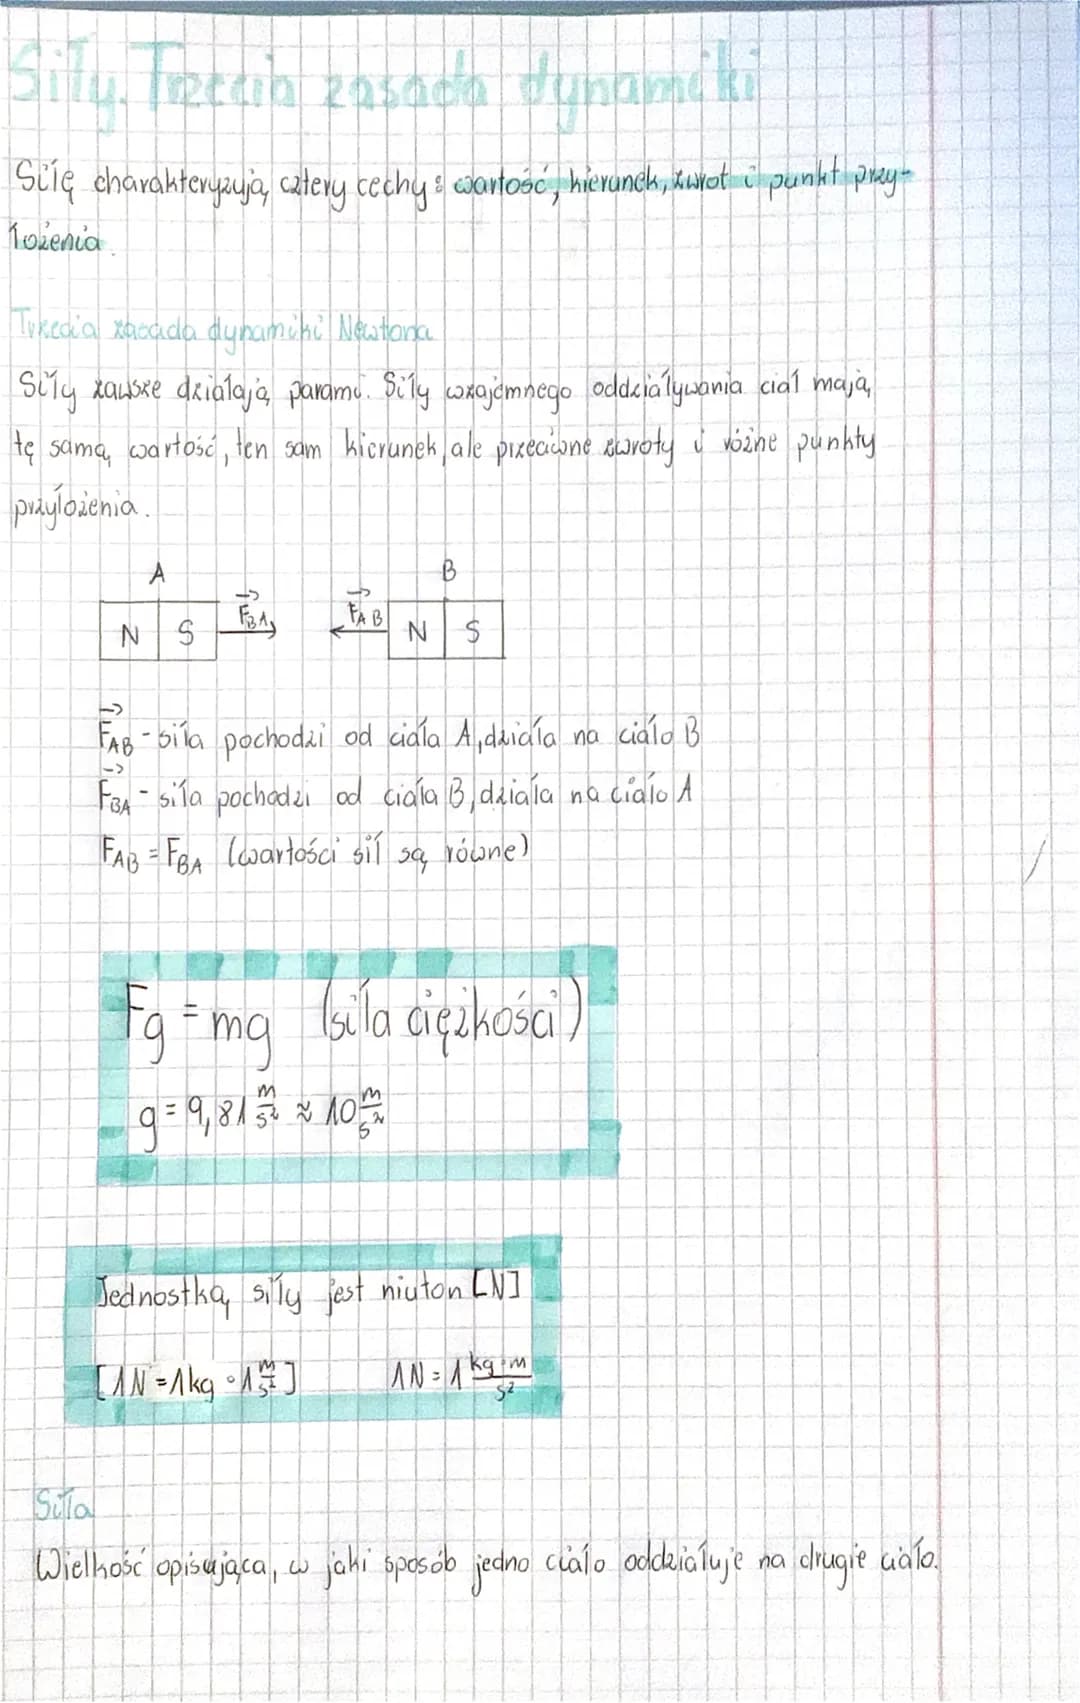 Siły. Trzecia zasada dynamiki
Siłę charakteryzują cztery cechy: wartość, kierunek, zwrot i punkt przy-
łożenia.
Trzecia zasada dynamiki Newtona
Siły zawsze działają parami. Siły wzajemnego oddziaływania ciał mają
tę samą wartość, ten sam kierunek, ale przeciwne zwroty i różne punkty
przyłożenia.
A B
N S F⃗BA F⃗AB N S
F⃗AB - siła pochodzi od ciała A, działa na ciało B
F⃗BA - siła pochodzi od ciała B, działa na ciało A
FAB = FBA (wartości sił są równe)
Fg = mg (siła ciężkości)
g = 9,81 m/s² ≈ 10 m/s²
Jednostką siły jest niuton [N]
[1N = 1kg · 1 m/s²] 1N = 1 kg·m/s²
Siła
Wielkość opisująca, w jaki sposób jedno ciało oddziałuje na drugie ciało.